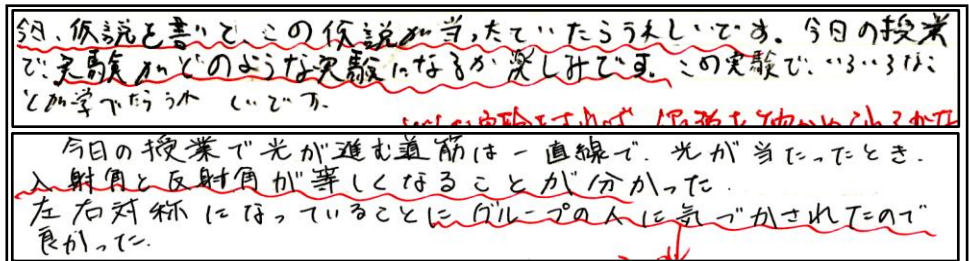 今日、仮説を書いて、この仮説が当ったていたらうれしいです。今日の授業
で、実験がどのような実験になるか楽しみです。この実験で、いろいろなこ
とが学べたらうれしいです。
今日の授業で光が進む道筋は一直線で、光が当たったとき、
入射角と反射角が等しくなることが分かった。
左右対称になっていることにグループの人に気づかされたので
良かった。